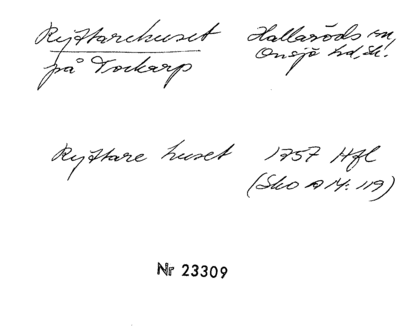 Ryttarehuset Hallaröds sn,
på Torkarp Onsjö hd, Sk.
Ryttare huset 1757 Hfl
(Sko A IV: 119)
Nr 23309